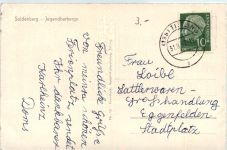 Saldenburg - Jugendherberge
3.-
10
Freundliche Grüße
von meinem schönen
Ferienplatz sendet
Ihr dankbarer
Karlheinz
Doms
Frau
Loibl
Sattlerwaren-
Großhandlung
Eggenfelden
Stadtplatz